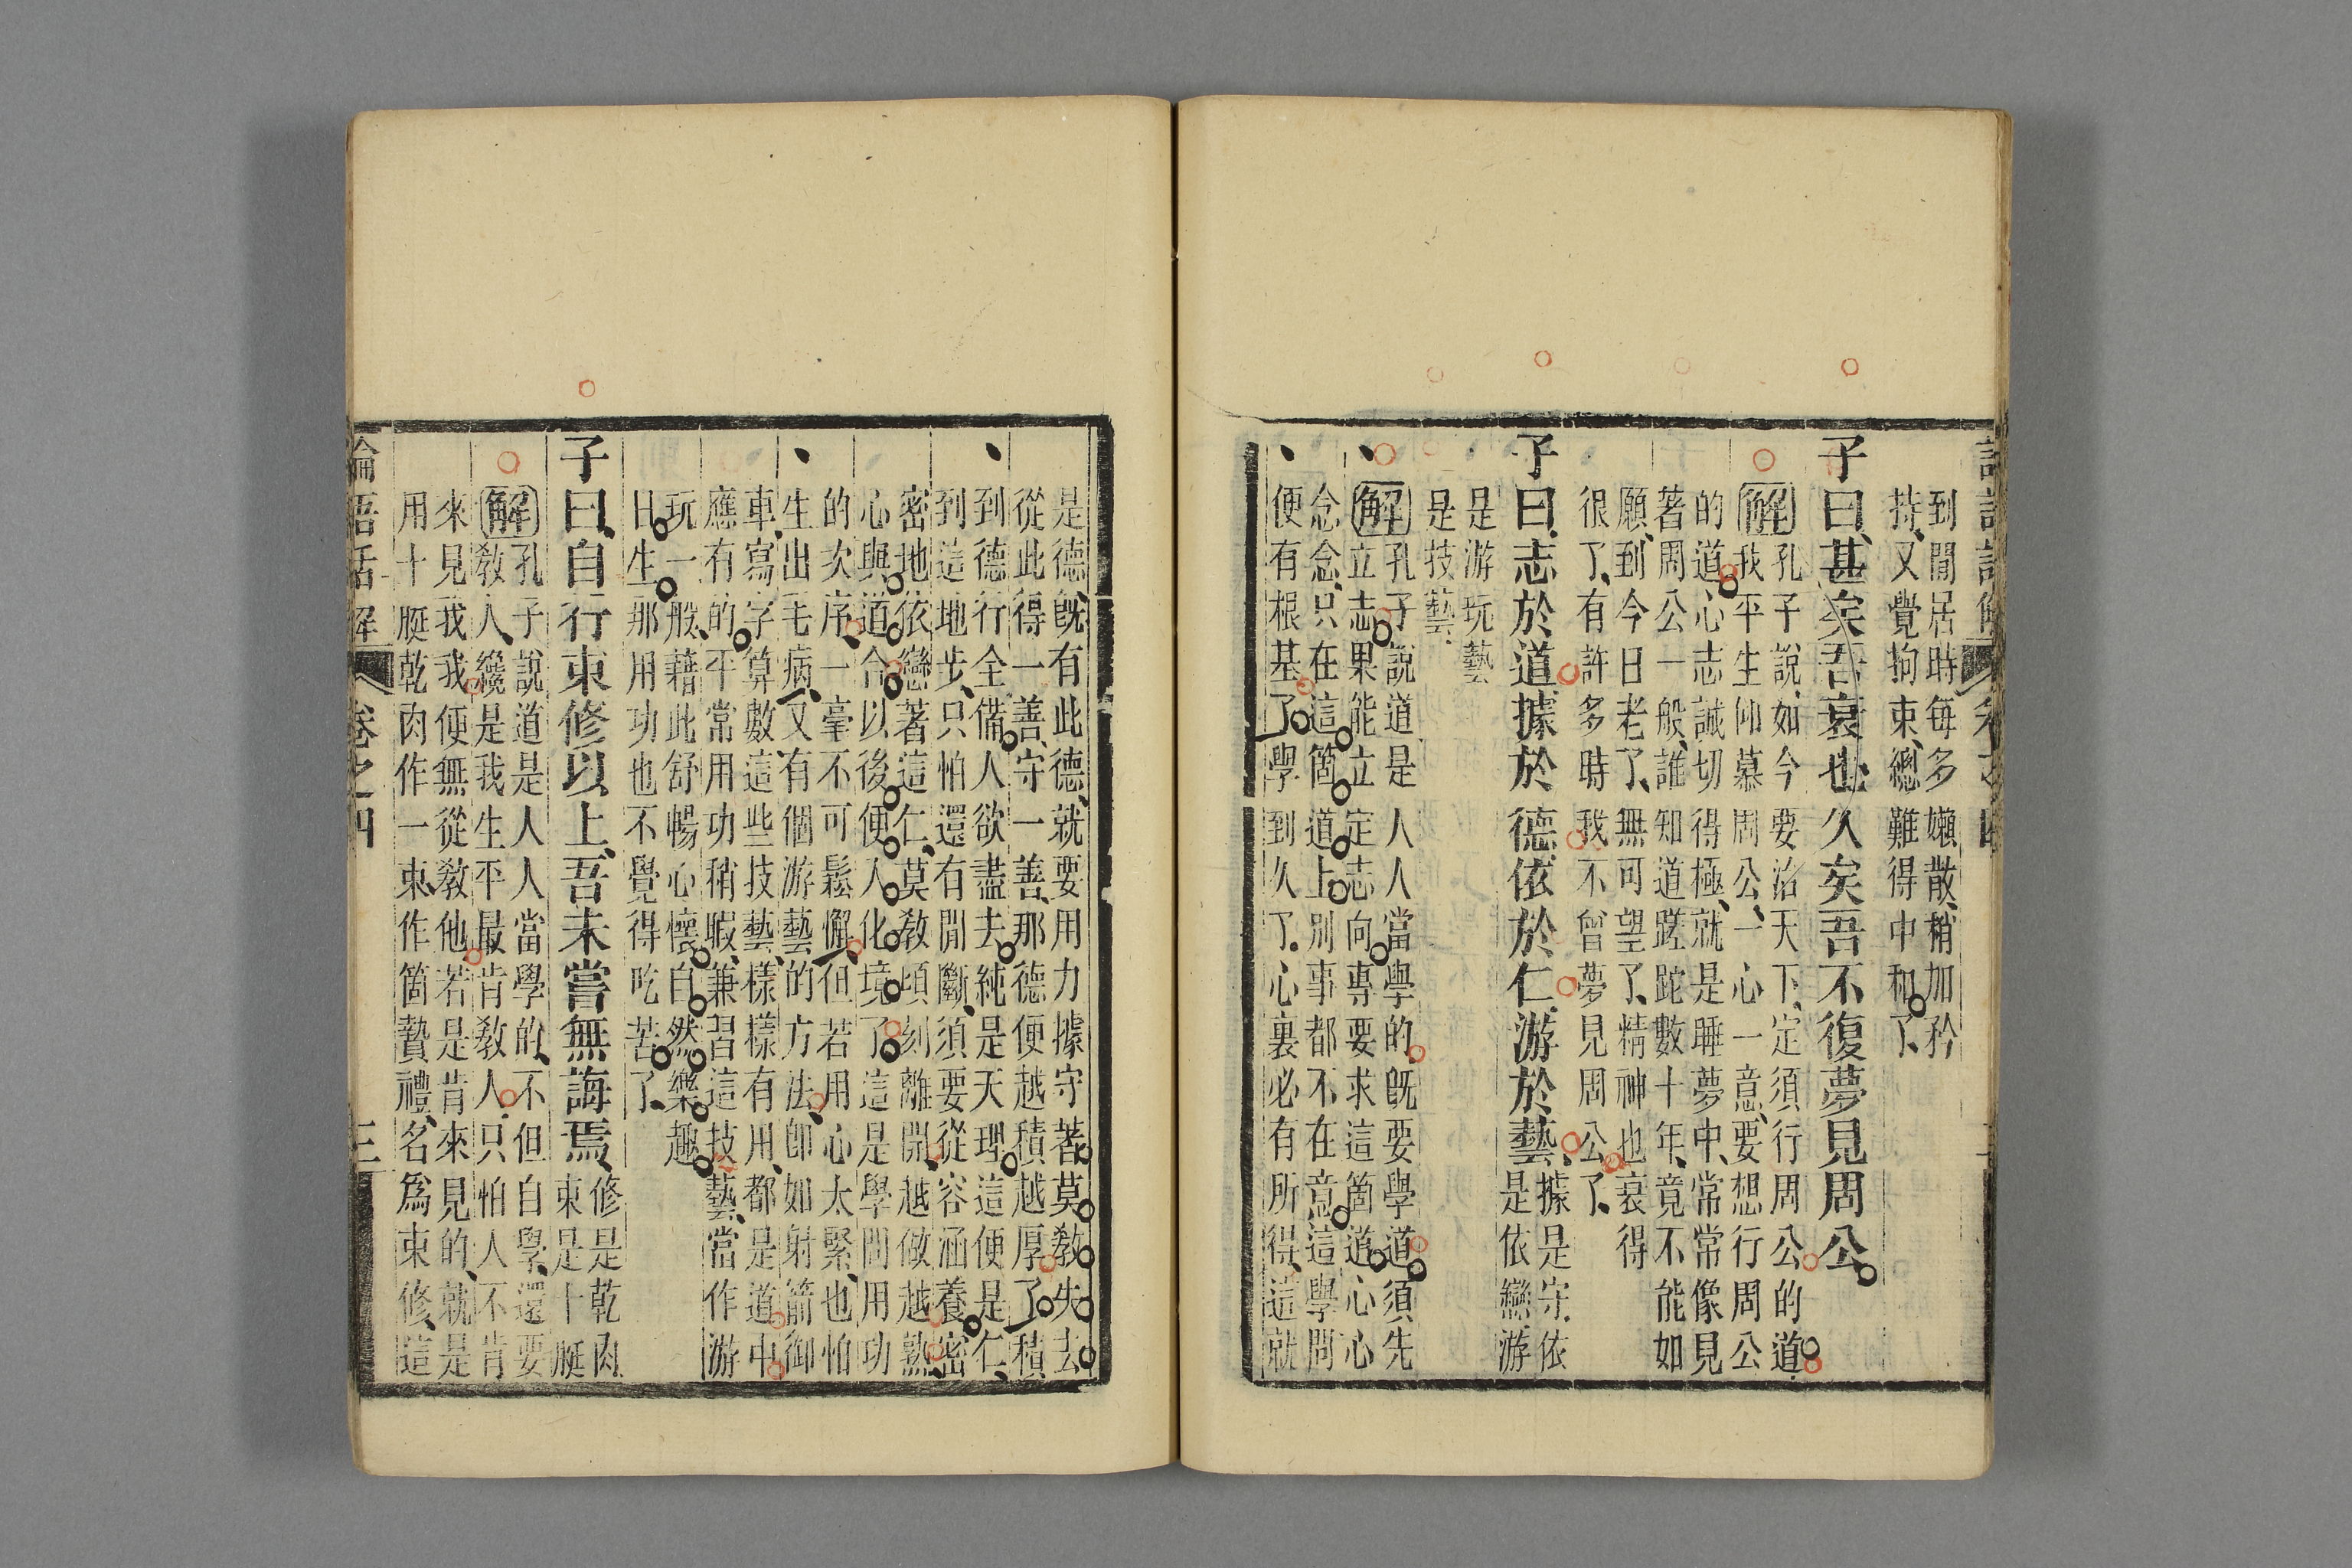 到閒居時每多嬾散、稍加矜
持、又覺拘束、總難得中和了、
子曰、甚矣吾衰也、久矣吾不復夢見周公、
解孔子說、如今要治天下、定須行周公的道、
我平生仰慕周公、一心一意、要想行周公
的道、心志誠切得極、就是睡夢中、常常像見
著周公一般、誰知道蹉跎數十年、竟不能如
願、到今日老了、無可望了、精神也衰得
很了、有許多時我不曾夢見周公了、
子曰、志於道、據於德、依於仁、游於藝、據是守、依
是依戀、游
是游玩藝
是技藝、
解孔子說道是人人當學的、旣要學道、須先
立志、果能立定志向、專要求這箇道、心心
念念、只在這箇道上、別事都不在意、這學問
便有根基了、學到久了、心裏必有所得、這就
是德、旣有此德、就要用力據守著、莫敎失去、
從此得一善、守一善、那德便越積越厚了、積
到德行全備、人欲盡去、純是天理、這便是仁、
到這地步、只怕還有閒斷、須要從容涵養、密
密地依戀著這仁、莫敎頃刻離開、越做越熟、
心與道合、以後便入化境了、這是學問用功
的次序、一毫不可鬆懈、但若用心太緊、也怕
生出毛病、又有個游藝的方法、卽如射箭御
車、寫字算數、這些技藝、樣樣有用、都是道中
應有的、平常用功稍暇、兼習這技藝、當作游
玩一般、藉此舒暢心懷、自然樂趣
日生、那用功也不覺得吃苦了、
子曰、自行束修以上、吾未嘗無誨焉、修是乾肉
束是十脡
解孔子說道是人人當學的、不但自學、還要
敎人、纔是我生平最肯敎人、只怕人不肯
來見我、我便無從敎他、若是肯來見的、就是
用十脡乾肉作一束、作箇贄禮、名爲束修、這
論語話解 卷之四 三